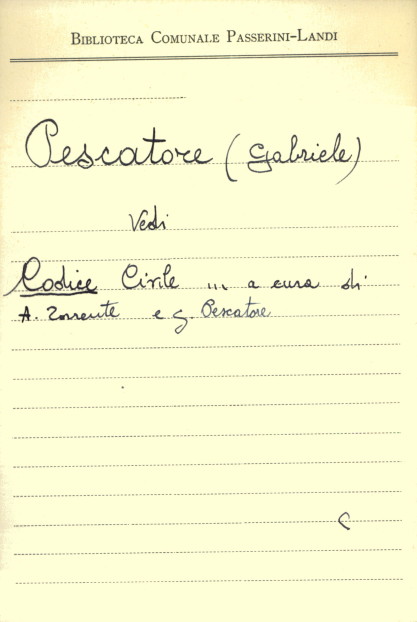 BIBLIOTECA COMUNALE PASSERINI-LANDI
Pescatore (Gabriele)
Vedi
Codice Civile ... a cura di
A. Torrente e G. Pescatore
C